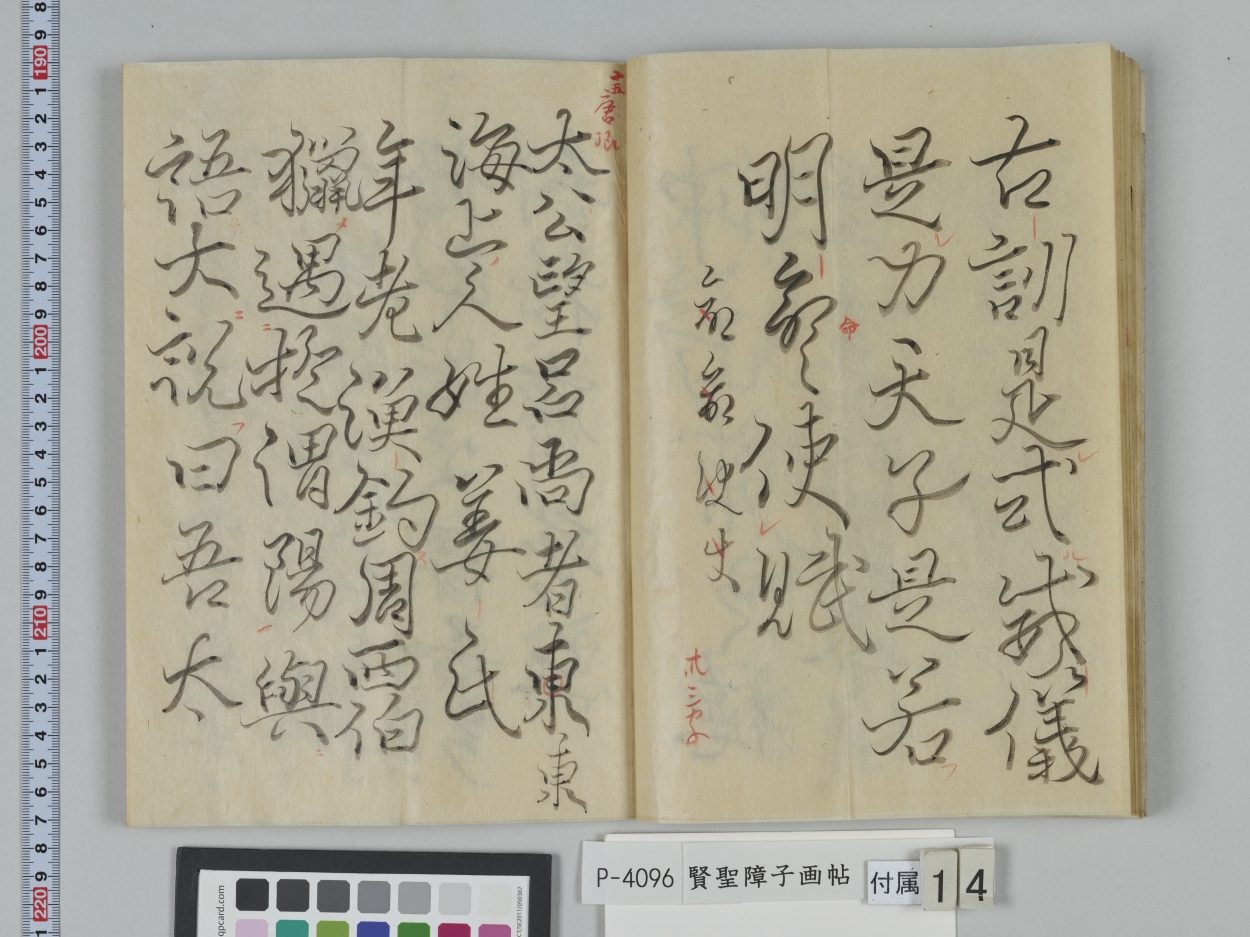 古訓是式威儀
是力天子是若
明命使賦
命
太公望呂尚者東東
海上之人姓姜氏
年老漁釣周西伯
獵遇於渭陽與
語大説曰吾太
P-4096 賢聖障子画帖 付属 14
qpcard.com
190
200
210
220